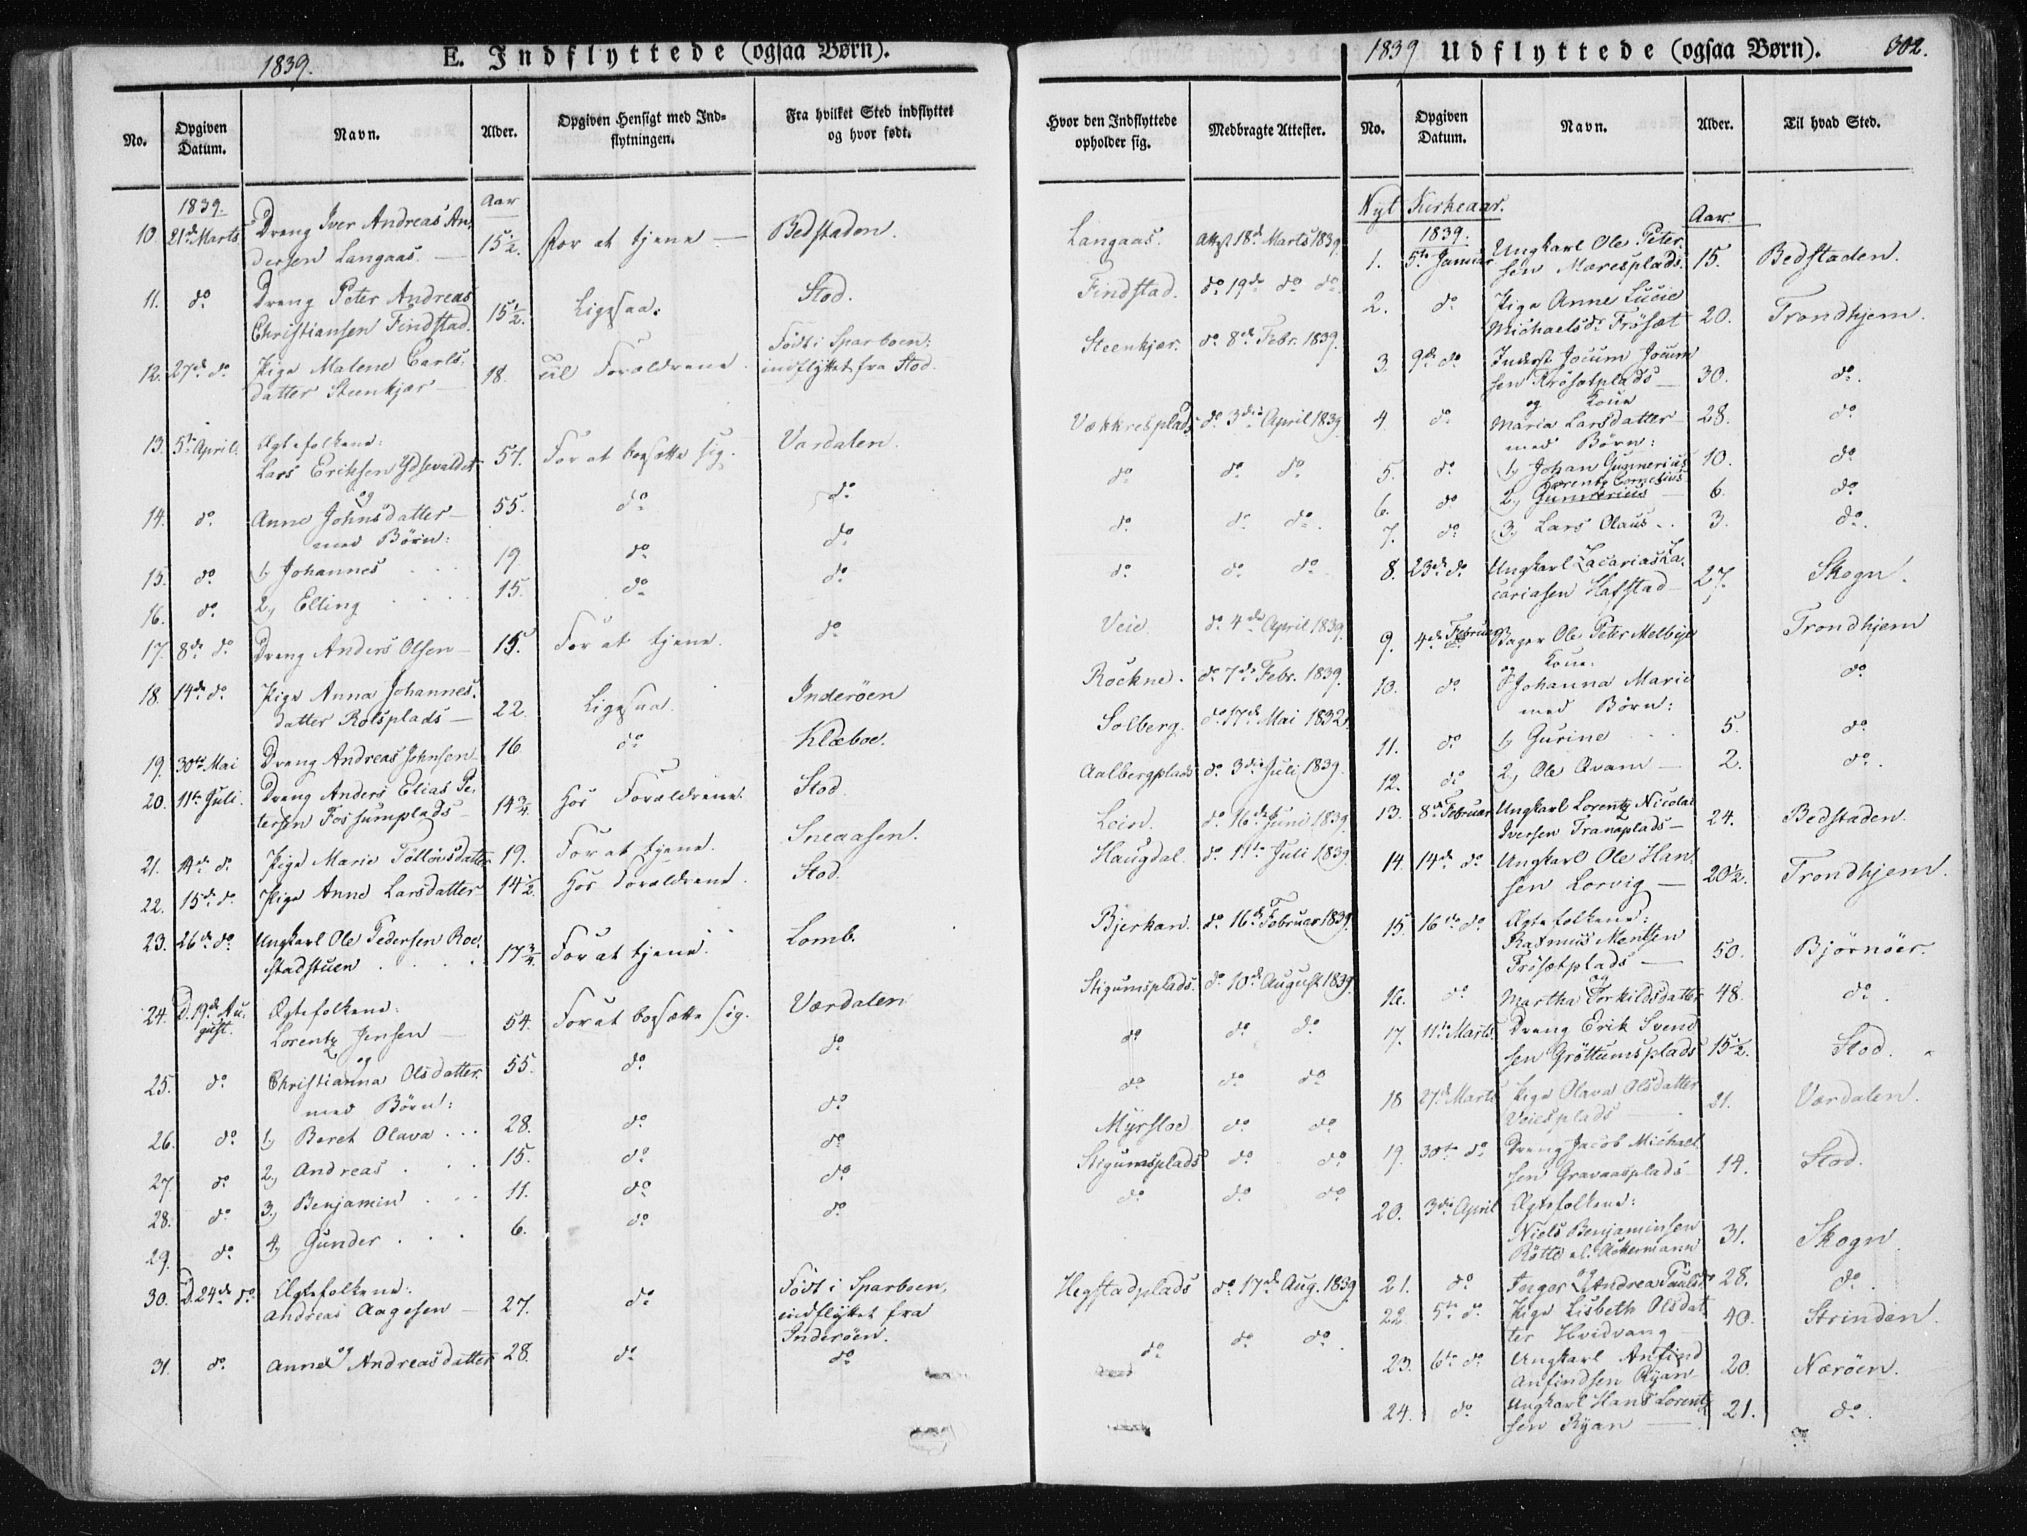 1839.
E. Indflyttede (ogsaa Børn).
No.
Opgiven Datum.
Navn.
Alder.
Opgiven Hensigt med Indflytningen.
Fra hvilket Sted indflyttet og hvor født.
Hvor den Indflyttede opholder sig.
Medbragte Attester.
1839. Aar
10. 21de Marts Dreng Iver Andreas An-
dersen Langaas. — 15½. For at tjene — Bedstaden. Langaas. Attest 18de Marts 1839.
11. do. Dreng Peter Andreas
Christiansen Findstad. 15½. Ligesaa. Stod. Findstad. do. 19de do. do.
12. 27de do. Pige Malene Carls-
datter Steenkjær — 18. til Forældrene. Født i Sparboen; indflyttet fra Stod. Steenkjær. do. 8de Febr. 1839.
13. 5te April. Ægtefolkene:
Lars Eriksen Ydsevaldet 57. For at bosætte sig. Værdalen. Vækkresplads do. 3die April 1839.
og
14. do. Anne Johnsdatter — 55. do do. do do do
med Børn:
15. do. 1, Johannes . . . 19. do do. do. do. do.
16. do. 2, Elling . . . . 15. do do. do. do. do.
17. 8de do. Dreng Anders Olsen — 15. For at tjene. do. Veie do. 4de April 1839.
18. 14de do. Pige Anna Johannes-
datter Rolsplads — 22. Ligesaa. Inderöen Röckne. do. 7de Febr. 1839.
19. 30te Mai Dreng Andreas Johnsen 16 do. Klæboe. Solberg. do. 17de Mai 1832.
20. 11te Juli. Dreng Anders Elias Pe-
tersen Fossumplads — 14¾. Hos Forældrene. Stod. Aalbergplads do. 3die Juli 1839.
21. 14de do. Pige Marie Tölløvsdatter 19. For at tjene. Sneaasen. Lein. do. 16de Juni 1839.
22. 15de do. Pige Anne Larsdatter 14½. Hos Forældrene. Stod. Haugdal. do. 11te Juli 1839.
23. 26de do. Ungkarl Ole Pedersen Roe-
stadstuen . . . . 17¾. For at tjene. Lomb. Bjerkan. do. 16de Februar 1839.
24. D. 19de Au-
gust. Ægtefolkene:
Lorentz Jensen — 54. For at bosætte sig. Værdalen Stigumsplads. do. 10de August 1839.
og
25. do. Christianna Olsdatter. 55. do do. do do do.
med Børn:
26. do. 1, Beret Olava . . . 28. do do. do do do
27. do 2, Andreas . . . 15. do do. Myrsloe do do
28. do 3, Benjamin . . . 11. do do Stigumsplads do do
29. do. 4, Gunder . . . 6. do do do do do
30. D. 24de do. Ægtefolkene:
Andreas Aagesen — 27. do Født i Sparboen, indflyttet fra Inderöen. Hegstadplads do. 17de Aug. 1839
og
31. do. Anne Andreasdatter 28. do do do do do.
1839 Udflyttede (ogsaa Børn). 302.
No.
Opgiven Datum.
Navn.
Alder.
Til hvad Sted.
Nyt Kirkeaar.
1839. Aar
1. 5te Januar Ungkarl Ole Peter-
sen Mæresplads. 15. Bedstaden.
2. do. Pige Anne Lucie
Michaelsdr. Frösæt 20. Trondhjem.
3. 9de do Inderst Jocum Jocum-
sen Frösætplads — 30. do.
og Kone
4. do. Maria Larsdatter — 28. do
med Børn:
5. do 1, Johan Gunnerius 10. do
6. do 2, Lorentz Cornelius — 6. do
7. do. 3, Lars Olaus . . 3. do.
8. 23de do. Ungkarl Zacarias Za-
cariasen Hafstad — 27. Skogn.
9. 4de Februar Bager Ole Peter Melbye Trondhjem
og Kone.
10. do. Johanna Marie do
med Børn:
11. do. 1, Gurine . . . 5. do.
12. do. 2, Ole Qvam — 2. do.
13. 8de Februar Ungkarl Lorentz Nicolai
Iversen Tranaplads — 24. Bedstaden.
14. 14de do. Ungkarl Ole Han-
sen Lorvig — 20½. Trondhjem.
15. 16de do. Ægtefolkene:
Rasmus Mentsen
Frösætplads — 50. Bjørnöer.
og
16. do. Martha Torkildsdatter 48. do.
17. 11te Marts. Dreng Erik Svend-
sen Gröttumsplads 15½. Stod.
18 27de Marts Pige Olava Olsdatter
Veiesplads — 21. Værdalen.
19. 30te do Dreng Jacob Michael-
sen Gravaasplads 14. Stod.
20. 3die April Ægtefolkene:
Niels Benjaminsen
Rötte el. Ackermann 31. Skogn.
og
21. do. Inger Andrea Paulsdr 28. do.
22 5te do. Pige Lisbeth Olsdat-
ter Hvidvang 40. Strinden.
23. 6te do. Ungkarl Anfind
Anfindsen Ryan 20. Næröen.
24. do. Ungkarl Hans Lorentz-
sen Ryan — 21. do.